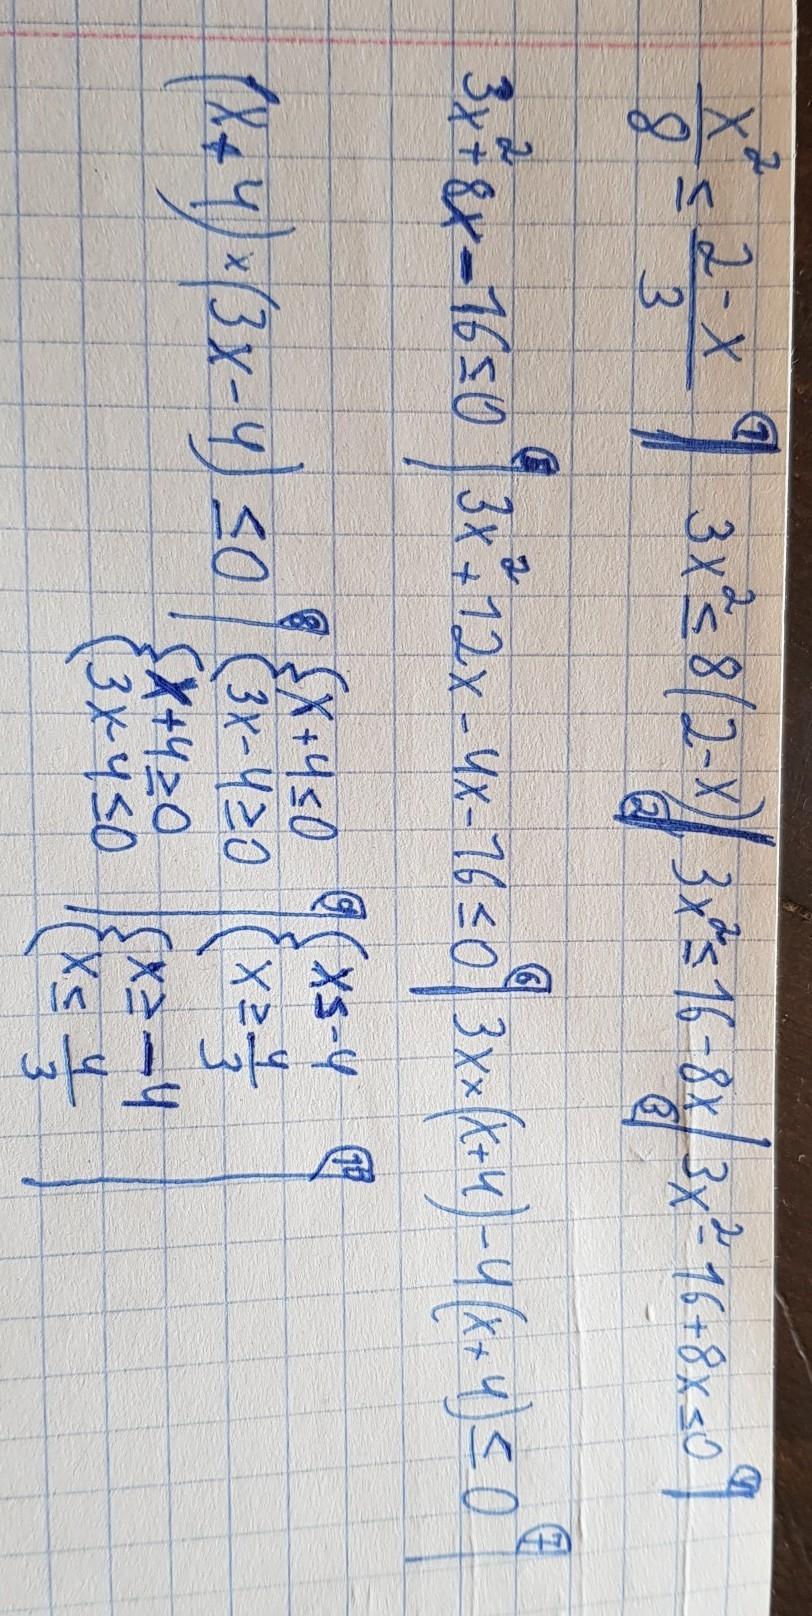 x²/8 ≤ (2-x)/3 | ① 3x² ≤ 8(2-x) | ② 3x² ≤ 16-8x | ③ 3x²-16+8x ≤ 0 | ④
3x²+8x-16 ≤ 0 | ⑤ 3x²+12x-4x-16 ≤ 0 | ⑥ 3x×(x+4)-4(x+4) ≤ 0 | ⑦
(x+4)×(3x-4) ≤ 0 | ⑧ { x+4 ≤ 0 | ⑨ { x ≤ -4 | ⑩
{ 3x-4 ≥ 0 { x ≥ 4/3
{ x+4 ≥ 0 { x ≥ -4
{ 3x-4 ≤ 0 { x ≤ 4/3